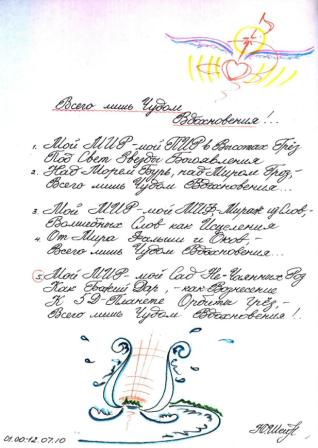 Всего лишь Чудом
Вдохновения!..
1. Мой МИР - мой ПИР в Высотах Грёз
Под Свет Звезды Богоявления
2. Над Морем Бурь, над Миром Гроз, -
Всего лишь Чудом Вдохновения...
3. Мой МИР - мой МИФ, Мираж из Слов, -
Волшебных Слов как Исцеления
4. От Мира Фальши и Оков, -
Всего лишь Чудом Вдохновения...
5. Мой МИР - мой Сад Не-Тленных Роз
Как Божий Дар, - как Вознесение
К 5D-Планете Орбиты Грёз, -
Всего лишь Чудом Вдохновения!..
01.00-12.07.10